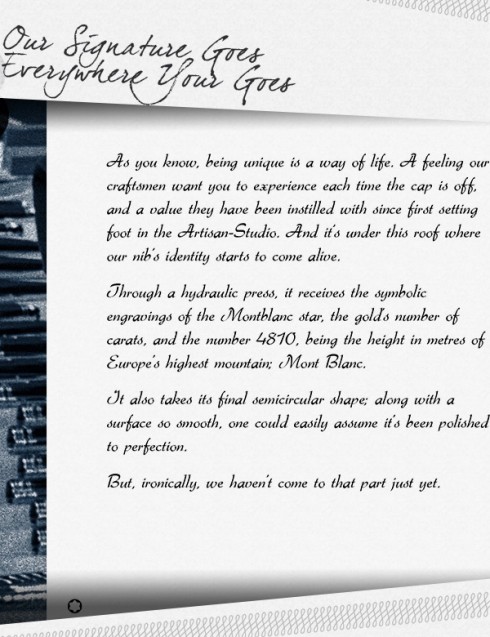 Our Signature Goes
Everywhere Your Goes
As you know, being unique is a way of life. A feeling our
craftsmen want you to experience each time the cap is off,
and a value they have been instilled with since first setting
foot in the Artisan-Studio. And it's under this roof where
our nib's identity starts to come alive.
Through a hydraulic press, it receives the symbolic
engravings of the Montblanc star, the gold's number of
carats, and the number 4810, being the height in metres of
Europe's highest mountain; Mont Blanc.
It also takes its final semicircular shape; along with a
surface so smooth, one could easily assume it's been polished
to perfection.
But, ironically, we haven't come to that part just yet.